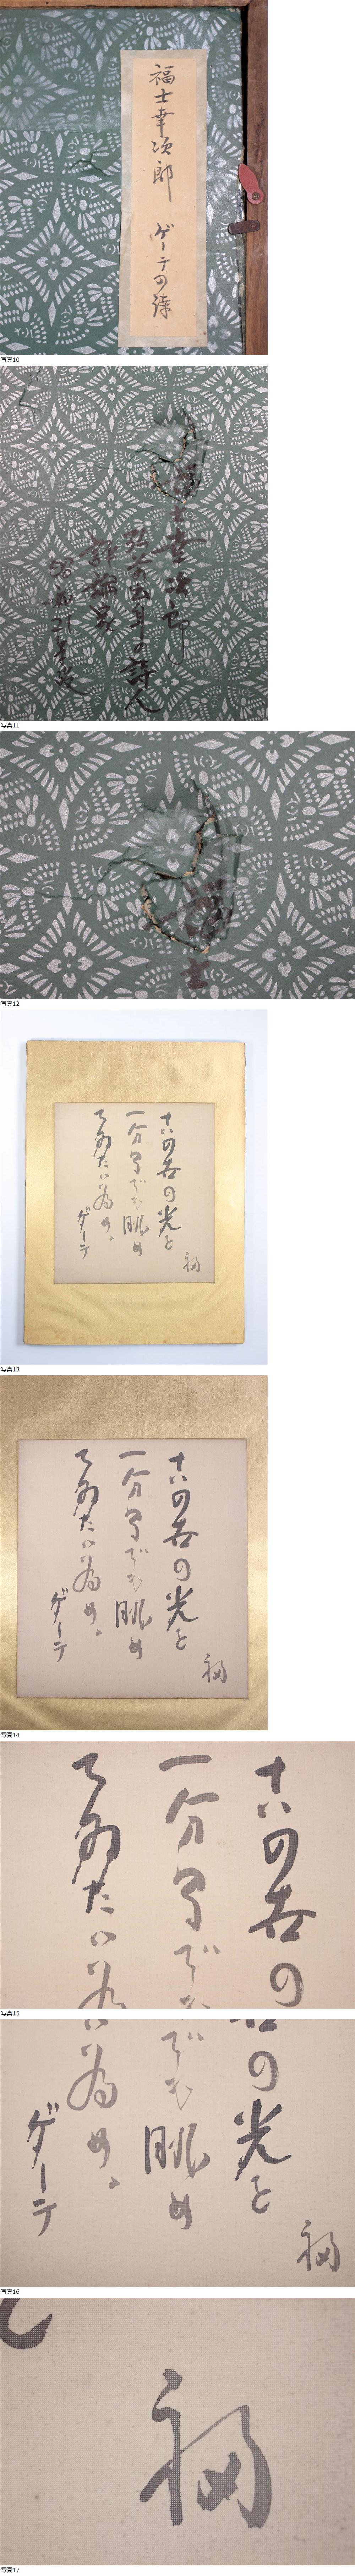 福士幸次郎 ゲーテの
写真10
士幸次郎
出身の詩人
評論家
写真11
士
写真12
の光を
一分間でも眺め
てゐたい為め。
ゲーテ
福
写真13
の光を
一分間でも眺め
てゐたい為め。
ゲーテ
福
写真14
の
一分間で
てゐたい
写真15
の光を
でも眺め
い為め。
ゲーテ
福
写真16
福
写真17